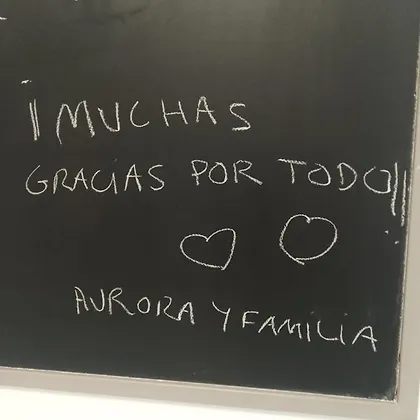 ¡MUCHAS
GRACIAS POR TODO!!
AURORA Y FAMILIA